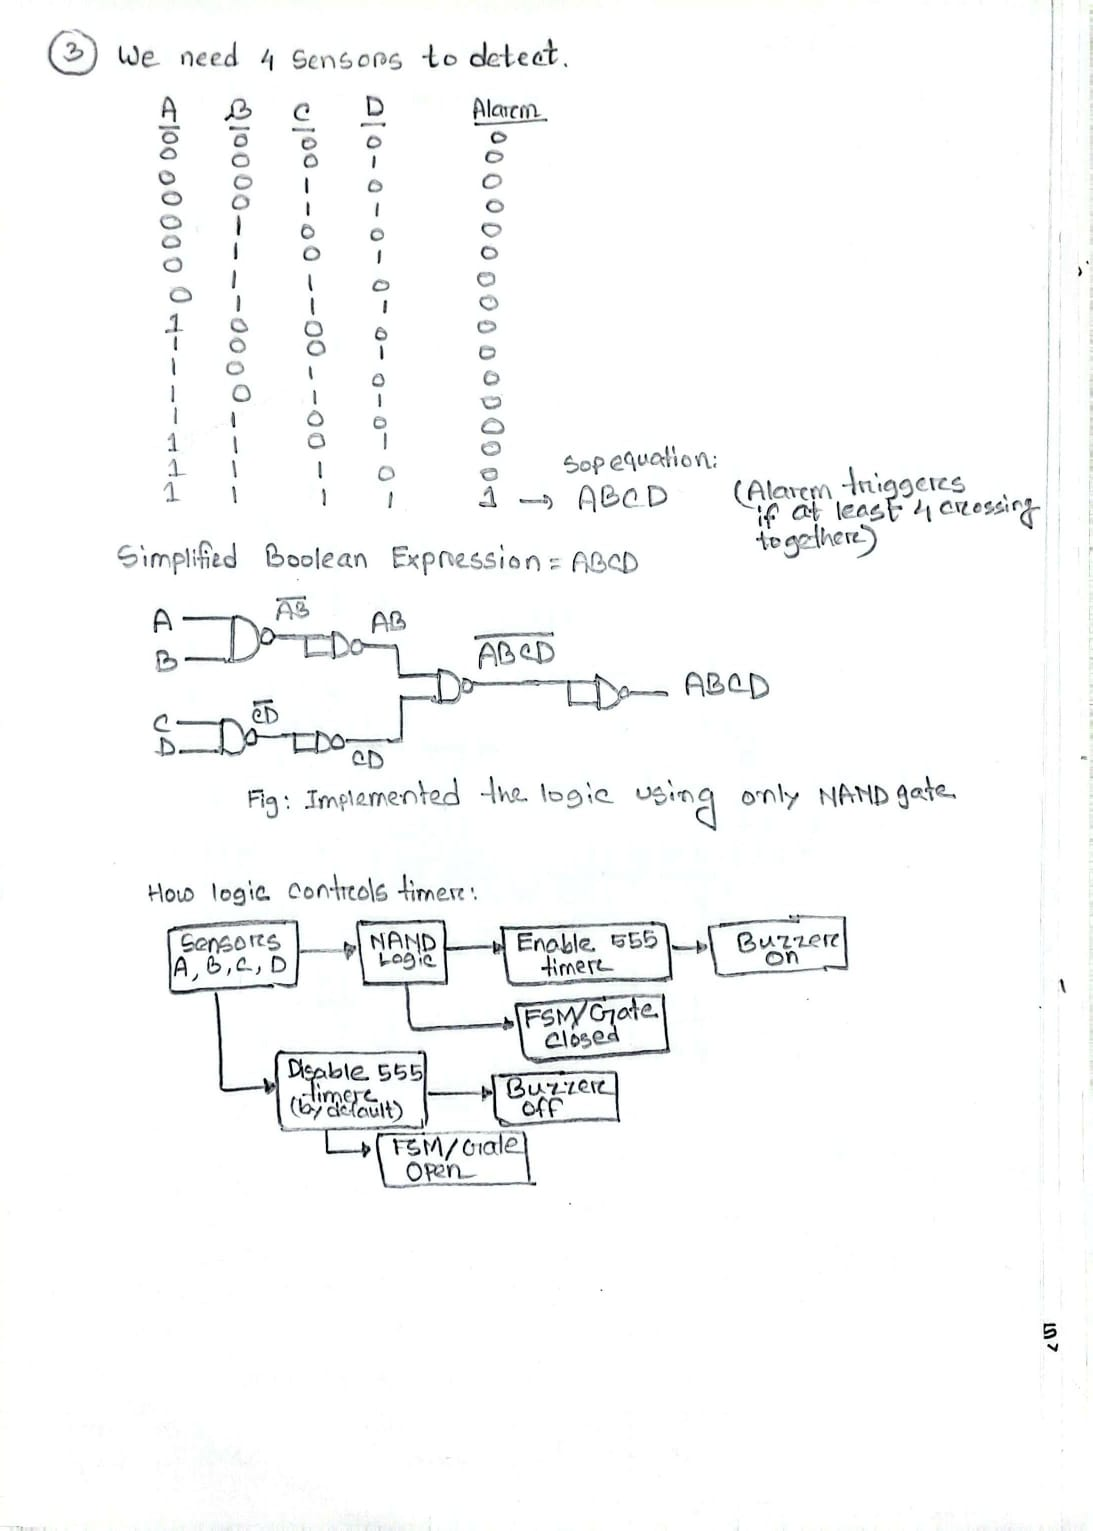 3 We need 4 Sensors to detect.
A B C D Alarm
0 0 0 0 0
0 0 0 1 0
0 0 1 0 0
0 0 1 1 0
0 1 0 0 0
0 1 0 1 0
0 1 1 0 0
0 1 1 1 0
1 0 0 0 0
1 0 0 1 0
1 0 1 0 0
1 0 1 1 0
1 1 0 0 0
1 1 0 1 0
1 1 1 0 0
Sop equation:
1 1 1 1 1 → ABCD
(Alarm triggers
if at least 4 crossing
together)
Simplified Boolean Expression = ABCD
A
B
A̅B̅
AB
A̅B̅C̅D̅
ABCD
C
D
C̅D̅
CD
Fig: Implemented the logic using only NAND gate
How logic controls timer:
Sensors
A, B, C, D
NAND
Logic
Enable 555
timer
Buzzer
On
FSM/Gate
Closed
Disable 555
timer
(by default)
Buzzer
off
FSM/Gate
Open
5